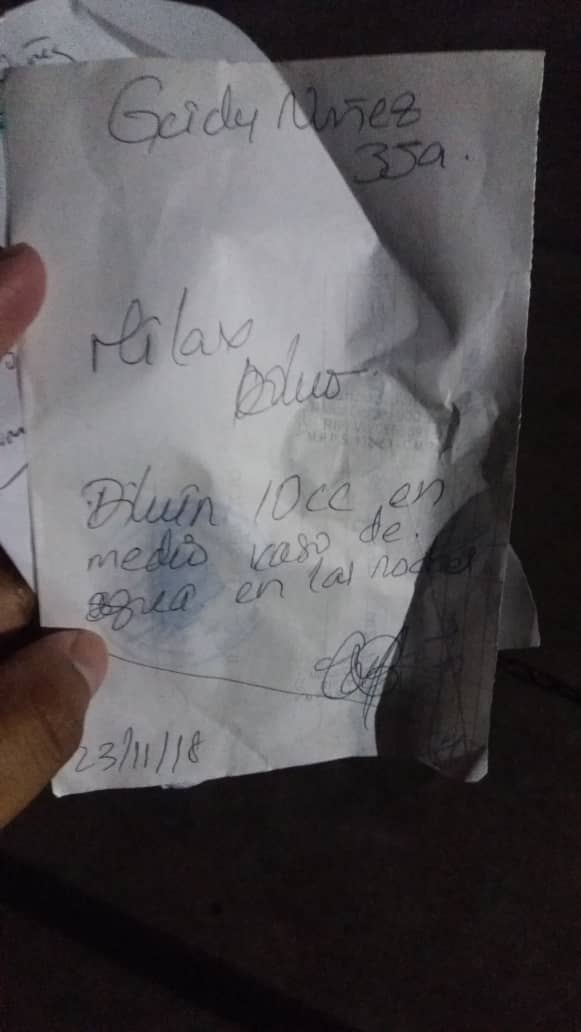 Geidy Nuñez
35a.
Milax
Diluir 10cc en
medio vaso de
agua en las noches
23/11/18